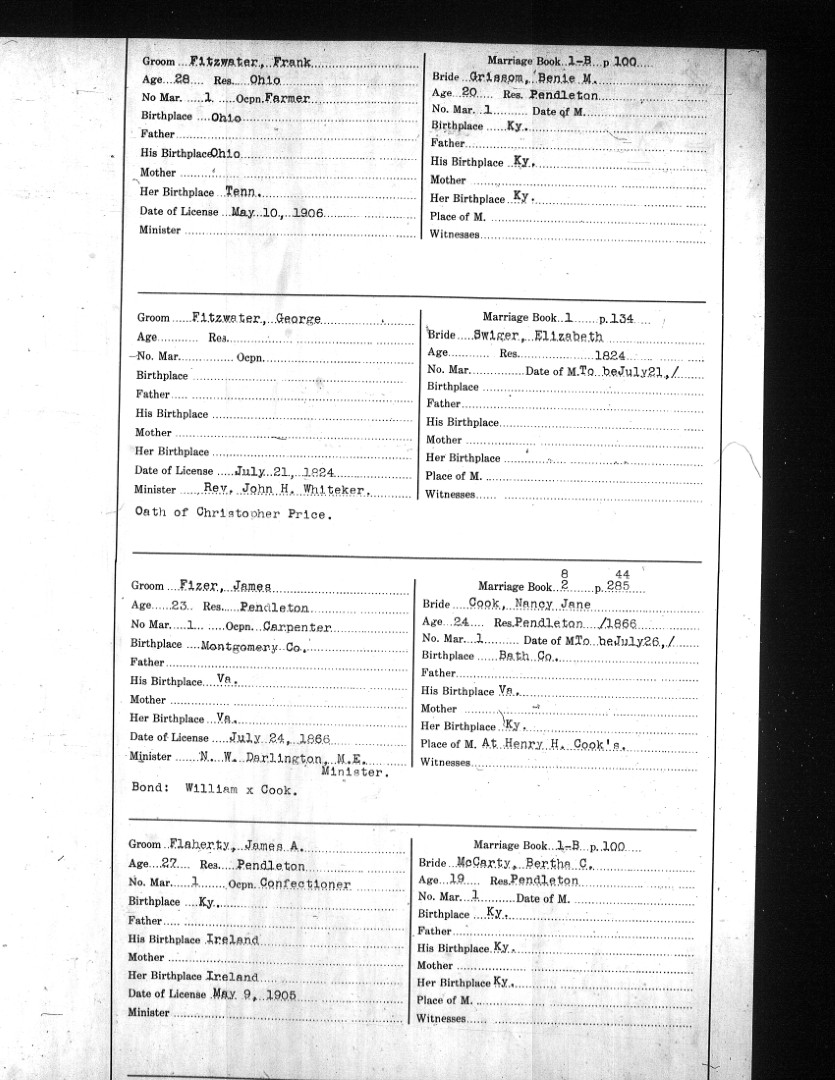 Groom Fitzwater, Frank
Age 28 Res. Ohio
No Mar. 1 Ocpn. Farmer
Birthplace Ohio
Father
His Birthplace Ohio
Mother
Her Birthplace Tenn.
Date of License May 10., 1906
Minister
Marriage Book 1-B p 100
Bride Grissom, Benie M.
Age 20 Res. Pendleton
No. Mar. 1 Date of M.
Birthplace Ky.
Father
His Birthplace Ky.
Mother
Her Birthplace Ky.
Place of M.
Witnesses
Groom Fitzwater, George
Age Res.
No. Mar. Ocpn.
Birthplace
Father
His Birthplace
Mother
Her Birthplace
Date of License July 21, 1824
Minister Rev. John H. Whiteker.
Oath of Christopher Price.
Marriage Book 1 p. 134
Bride Swiger, Elizabeth
Age Res. 1824
No. Mar. Date of M. To be July 21,/
Birthplace
Father
His Birthplace
Mother
Her Birthplace
Place of M.
Witnesses
Groom Fizer, James
Age 23 Res. Pendleton
No Mar. 1 Ocpn. Carpenter
Birthplace Montgomery Co.
Father
His Birthplace Va.
Mother
Her Birthplace Va.
Date of License July 24, 1866
Minister N. W. Darlington, M.E.
Minister.
Bond: William x Cook.
8 44
Marriage Book 2 p. 285
Bride Cook, Nancy Jane
Age 24 Res. Pendleton /1866
No. Mar. 1 Date of M To be July 26,/
Birthplace Bath Co.
Father
His Birthplace Va.
Mother
Her Birthplace Ky.
Place of M. At Henry H. Cook's.
Witnesses
Groom Flaherty, James A.
Age 27 Res. Pendleton
No. Mar. 1 Ocpn. Confectioner
Birthplace Ky.
Father
His Birthplace Ireland
Mother
Her Birthplace Ireland
Date of License May 9, 1905
Minister
Marriage Book 1-B p. 100
Bride McCarty, Bertha C.
Age 19 Res. Pendleton
No. Mar. 1 Date of M.
Birthplace Ky.
Father
His Birthplace Ky.
Mother
Her Birthplace Ky.
Place of M.
Witnesses